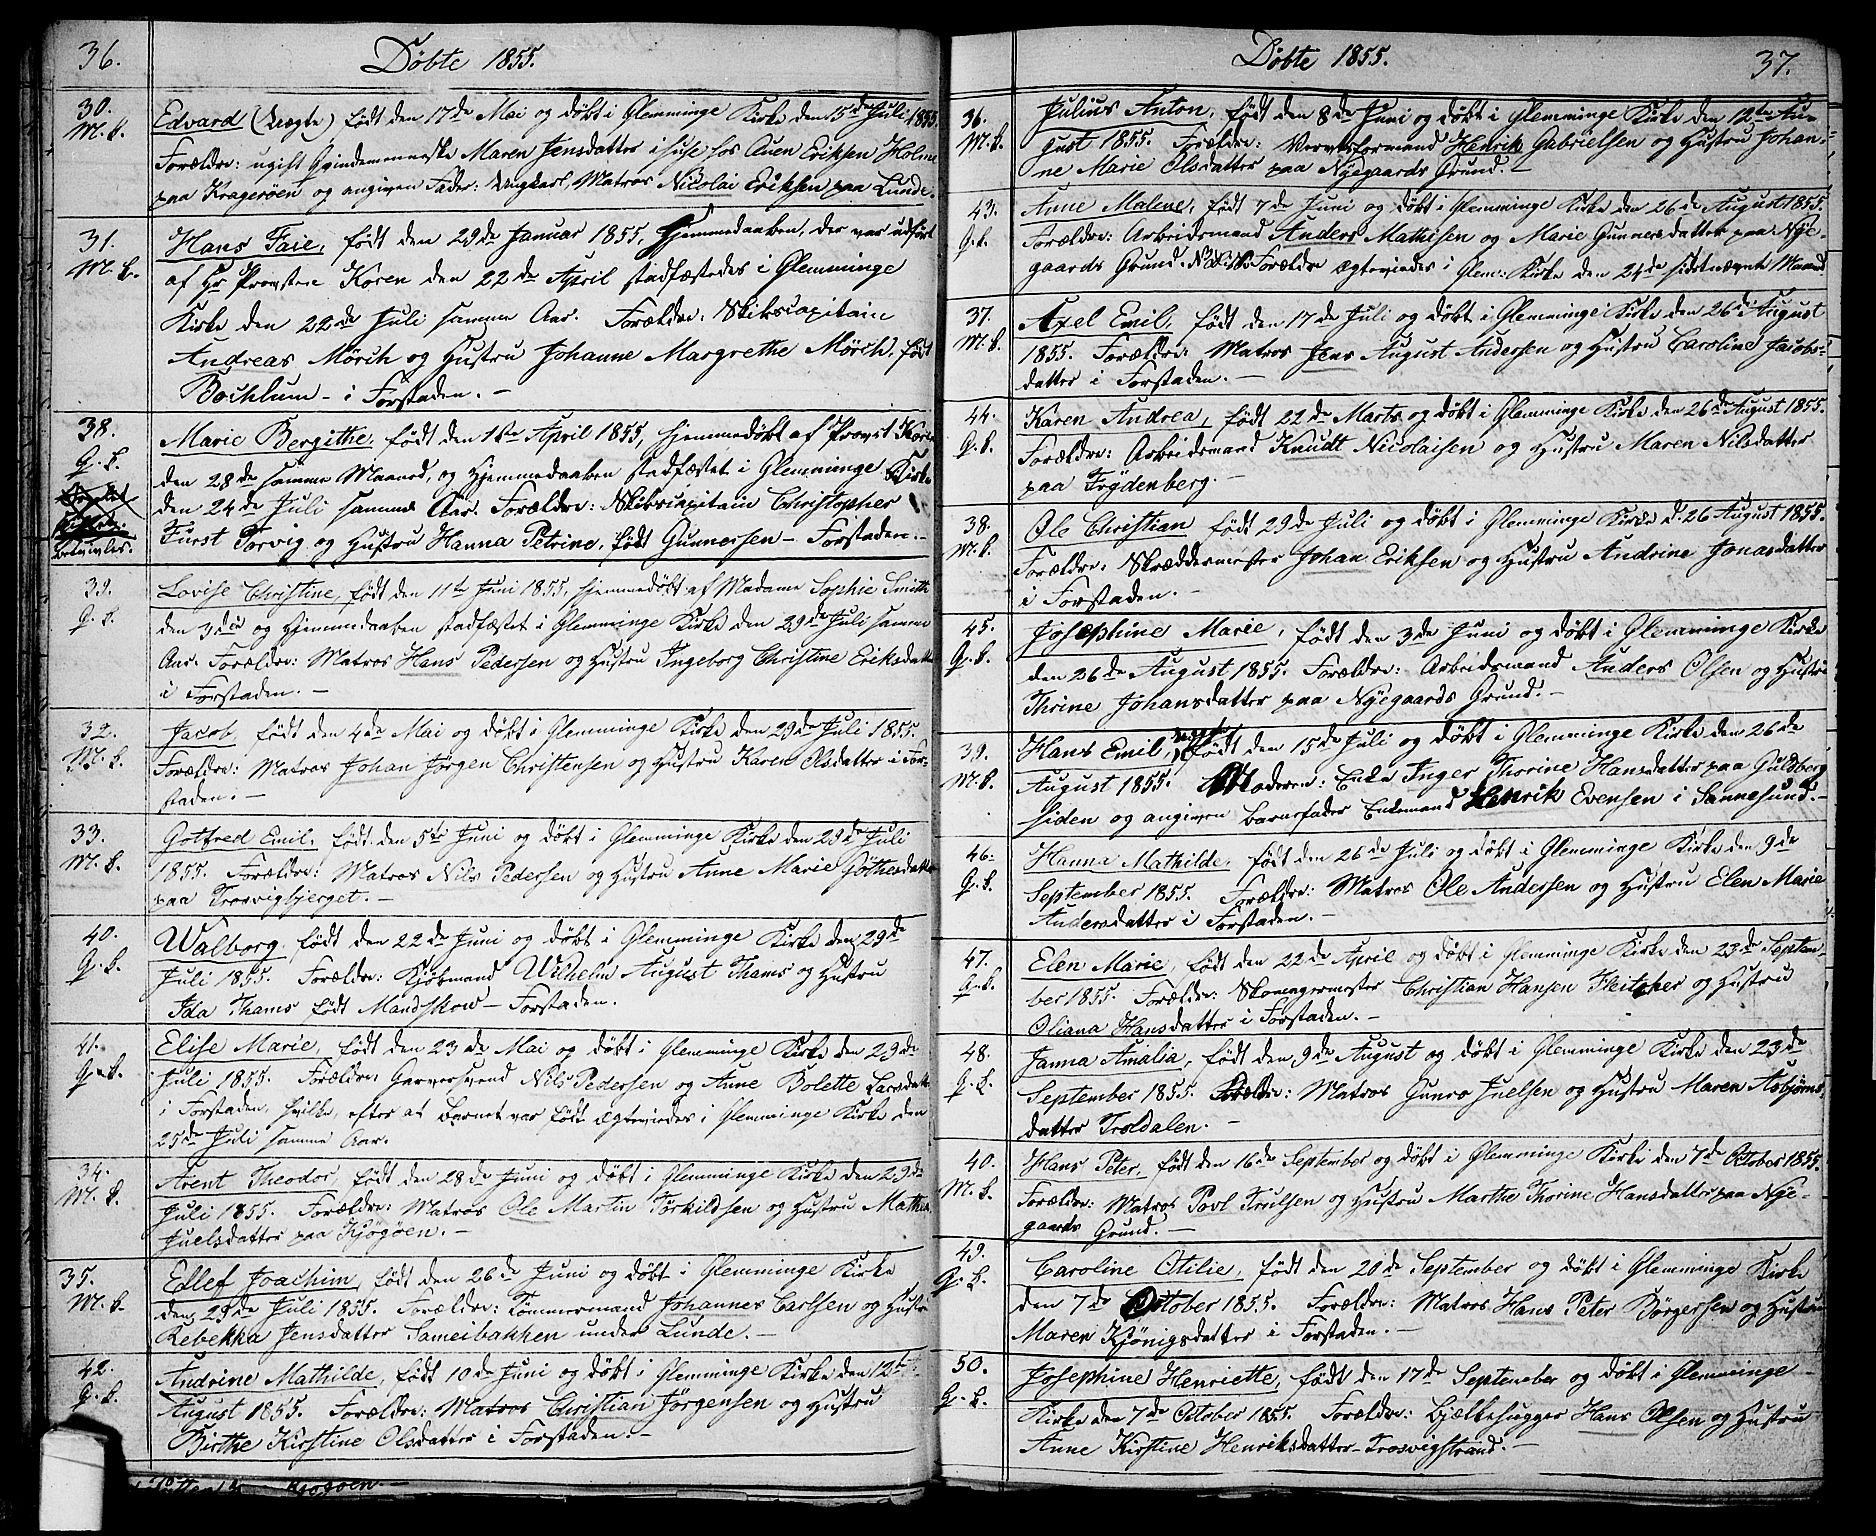 36.
Døbte 1855.
30.
M. k.
Edvard (Uægte) født den 17de Mai og døbt i Glemminge Kirke den 15de Juli 1855
Forældre: ugift Qvindemenneske Maren Jensdatter i huse hos Auen Eriksen Holm
paa Kragerøen og angiven Fader: Ungkarl, Matros Nicolai Eriksen paa Lunde.
31.
M. k.
Hans Faie, født den 29de Januar 1855, Hjemmedaaben, der var udført
af Hr Provsten Koren den 22de April stadfæstedes i Glemminge
Kirke den 22de Juli samme Aar. Forældre: Skibscapitain
Andreas Mörch og Hustru Johanne Margrethe Mörch, født
Bochlum - i Forstaden. -
38.
Q. k.
Marie Bergithe, født den 1ste April 1855, hjemmedøbt af Provst Koren
den 28de samme Maaned, og Hjemmedaaben stadfæstet i Glemminge Kirke
den 24de Juli samme Aar. Forældre: Skibscapitain Christopher
Fürst Torvig og Hustru Hanna Petrine, født Gunnersen - Forstaden. -
39.
Q. k.
Lovise Christine, født den 11te Juni 1855, hjemmedøbt af Madame Sophie Smith
den 3die og Hjemmedaaben stadfæstet i Glemminge Kirke den 29de Juli samme
Aar. Forældre: Matros Hans Pedersen og Hustru Ingeborg Christine Eriksdatter
i Forstaden. -
32.
M. k.
Jacob, født den 4de Mai og døbt i Glemminge Kirke den 29de Juli 1855.
Forældre: Matros Johan Jørgen Christensen og Hustru Karen Olsdatter i For-
staden. -
33.
M. k.
Gotfred Emil, født den 5te Juni og døbt i Glemminge Kirke den 29de Juli
1855. Forældre: Matros Nils Pedersen og Hustru Anne Marie Göthesdatter
paa Trosvigbjerget. -
40.
Q. k.
Walborg, født den 22de Juni og døbt i Glemminge Kirke den 29de
Juli 1855. Forældre: Kjøbmand Wilhelm August Thams og Hustru
Ida Thams født Mandskow - Forstaden.
41.
Q. k.
Elise Marie, født den 23de Mai og døbt i Glemminge Kirke den 29de
Juli 1855. Forældre: Garversvend Nils Pedersen og Anne Bolette Larsdatter
i Forstaden, hvilke, efter at Barnet var født ægteviedes i Glemminge Kirke den
25de Juli samme Aar.
34.
M. k.
Arent Theodor, født den 28de Juni og døbt i Glemminge Kirke den 29de
Juli 1855. Forældre: Matros Ole Martin Torkildsen og Hustru Mathea
Juelsdatter paa Kjøgöen. -
35.
M. k.
Edlef Joachim, født den 26de Juni og døbt i Glemminge Kirke
den 29de Juli 1855. Forældre: Tømmermand Johannes Carlsen og Hustru
Rebekka Jensdatter Sameibakken under Lunde. -
42.
Q. k.
Andrine Mathilde, født 10de Juni og døbt i Glemminge Kirke den 12te
August 1855. Forældre: Matros Christian Jörgensen og Hustru
Birthe Kirstine Olsdatter i Forstaden. -
Døbte 1855.
37.
36.
M. k.
Julius Anton, født den 8de Juni og døbt i Glemminge Kirke den 12te Au-
gust 1855. Forældre: Værvsformand Henrik Gabrielsen og Hustru Johan-
ne Marie Olsdatter paa Nyegaards Grund. -
43.
Q. k.
Anne Malene, født 7de Juni og døbt i Glemminge Kirke den 26de August 1855.
Forældre: Arbeidsmand Anders Mathisen og Marie Gunnersdatter paa Nye-
gaards Grund. Forældre ægteviedes i Glem: Kirke den 24de sidstnævnte Maaned
37.
M. k.
Axel Emil, født den 17de Juli og døbt i Glemminge Kirke den 26de August
1855. Forældre: Matros Jens August Andersen og Hustru Caroline Jacobs-
datter i Forstaden. -
44.
Q. k.
Karen Andrea, født 22de Marts og døbt i Glemminge Kirke den 26de August 1855.
Forældre: Arbeidsmand Knudt Nicolaisen og Hustru Maren Nilsdatter
paa Frydenberg. -
38.
M. k.
Ole Christian født 29de Juli og døbt i Glemminge Kirke d. 26 August 1855.
Forældre: Skræddermester Johan Eriksen og Hustru Andrine Jonasdatter
i Forstaden. -
45.
Q. k.
Josephine Marie, født den 3de Juni og døbt i Glemminge Kirke
den 26de August 1855. Forældre: Arbeidsmand Anders Olsen og Hustru
Thrine Johansdatter paa Nyegaards Grund. -
39.
M. k.
Hans Emil, uægte født den 15de Juli og døbt i Glemminge Kirke den 26de
August 1855. Moderen: Enke Inger Thorine Hansdatter paa Guldberg
siden og angiven Barnefader Enkemand Henrik Evensen i Sannesund. -
46.
Q. k.
Hanna Mathilde, født den 26de Juli og døbt i Glemminge Kirke den 9de
September 1855. Forældre: Matros Ole Andersen og Hustru Elen Marie
Andersdatter i Forstaden. -
47.
Q. k.
Elen Marie, født den 22de April og døbt i Glemminge Kirke den 23de Septem-
ber 1855. Forældre: Skomagermester Christian Hansen Fleitcher og Hustru
Oliana Hansdatter i Forstaden. -
48.
Q. k.
Janna Amalia, født den 9de August og døbt i Glemminge Kirke den 23de
September 1855. Forældre: Matros Gunro Juelsen og Hustru Maren Asbjørns-
datter Troldalen. -
40.
M. k.
Hans Peter, født den 16de September og døbt i Glemminge Kirke den 7de October 1855.
Forældre: Matros Povl Trulsen og Hustru Marthe Thorine Hansdatter paa Nye-
gaards Grund. -
49.
Q. k.
Caroline Otilie, født den 20de September og døbt i Glemminge Kirke
den 7de October 1855. Forældre: Matros Hans Peter Börgersen og Hustru
Maren Kjönigsdatter i Forstaden. -
50.
Q. k.
Josephine Henriette, født den 17de September og døbt i Glemminge
Kirke den 7de October 1855. Forældre: Bjælkehugger Hans Olsen og Hustru
Anne Kirstine Henriksdatter - Trosvigstrand. -